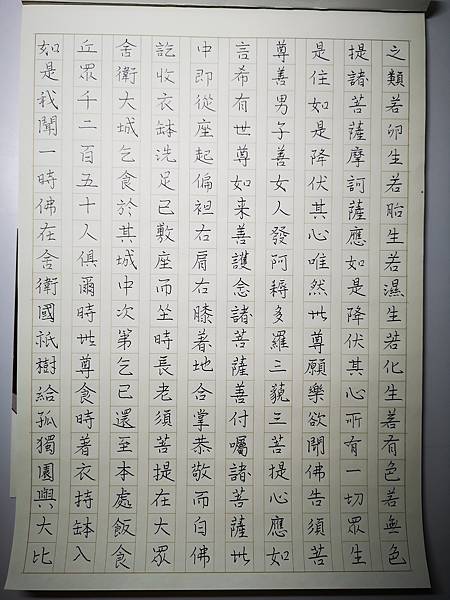 如是我聞一時佛在舍衛國祇樹給孤獨園與大比
丘眾千二百五十人俱爾時世尊食時著衣持缽入
舍衛大城乞食於其城中次第乞已還至本處飯食
訖收衣缽洗足已敷座而坐時長老須菩提在大眾
中即從座起偏袒右肩右膝著地合掌恭敬而白佛
言希有世尊如来善護念諸菩薩善付囑諸菩薩世
尊善男子善女人發阿耨多羅三藐三菩提心應如
是住如是降伏其心唯然世尊願樂欲聞佛告須菩
提諸菩薩摩訶薩應如是降伏其心所有一切眾生
之類若卵生若胎生若濕生若化生若有色若無色